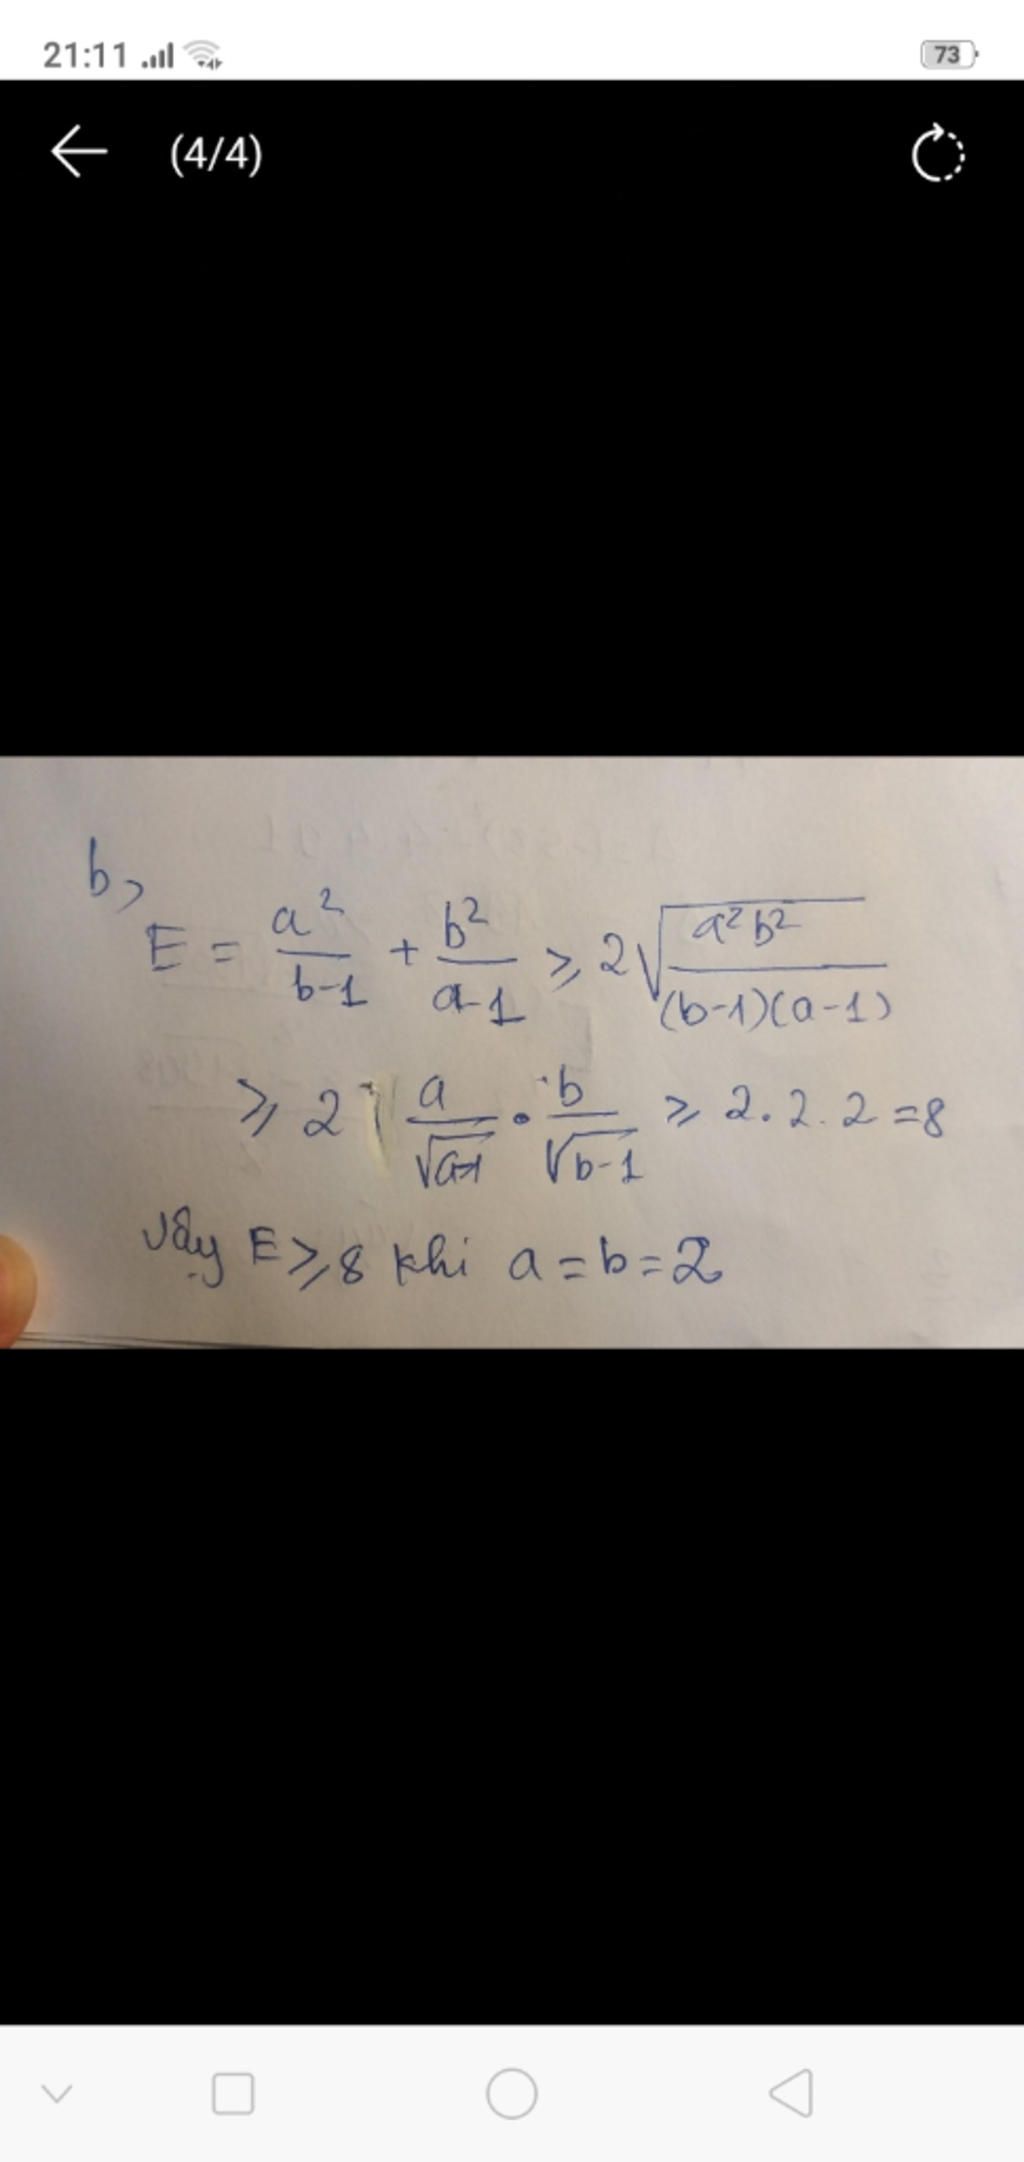 21:11
73
(4/4)
b,
E = a²/(b-1) + b²/(a-1) ⩾ 2√(a²b²/((b-1)(a-1)))
⩾ 2 a/√(a-1) · b/√(b-1) ⩾ 2.2.2 = 8
Vậy E ⩾ 8 khi a = b = 2